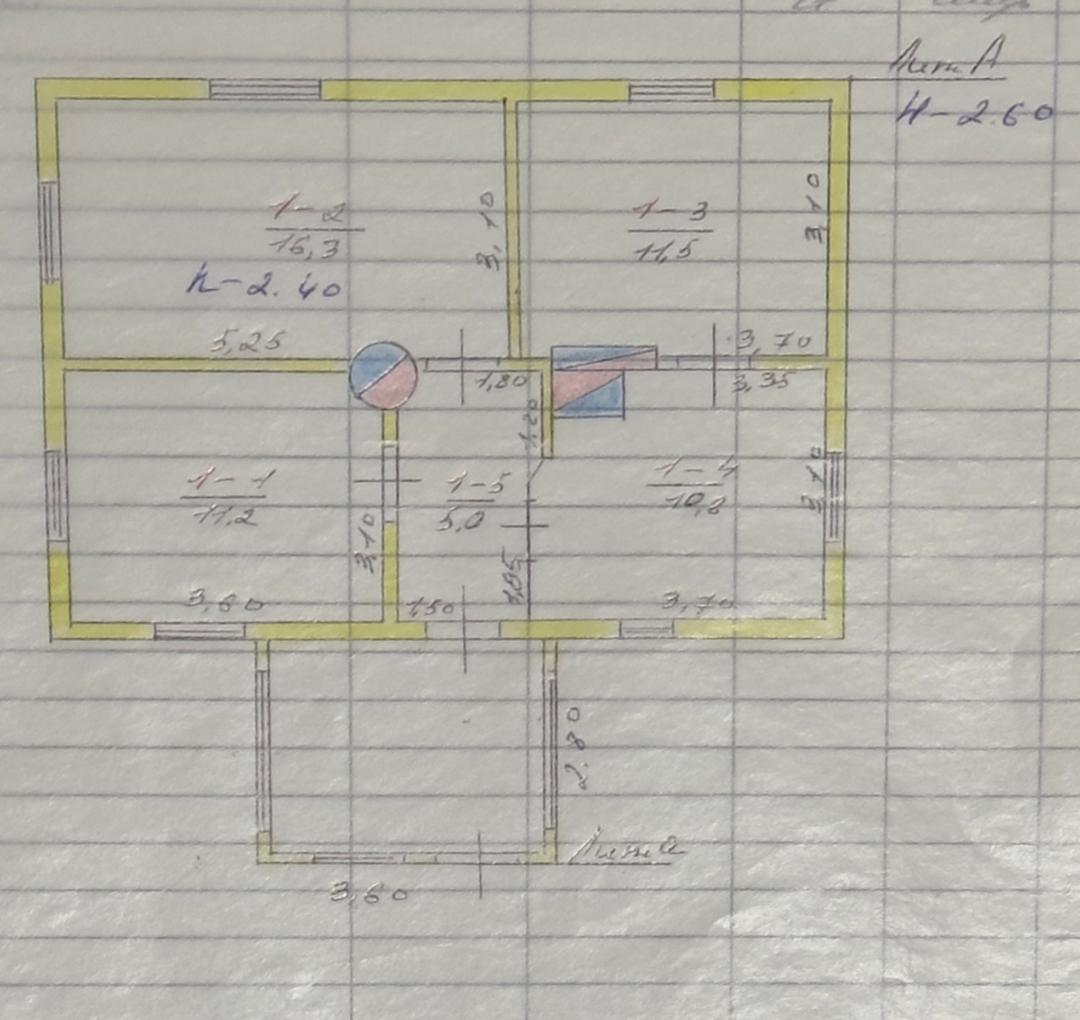 Лит А
H-2.60
1-2
16,3
h-2.40
3,10
1-3
11,5
3,10
5,25
1,80
3,70
3,35
1,20
1-1
11,2
3,10
1-5
5,0
1-4
10,8
3,10
1,85
3,60
1,50
3,70
2.80
Лит а
3,60